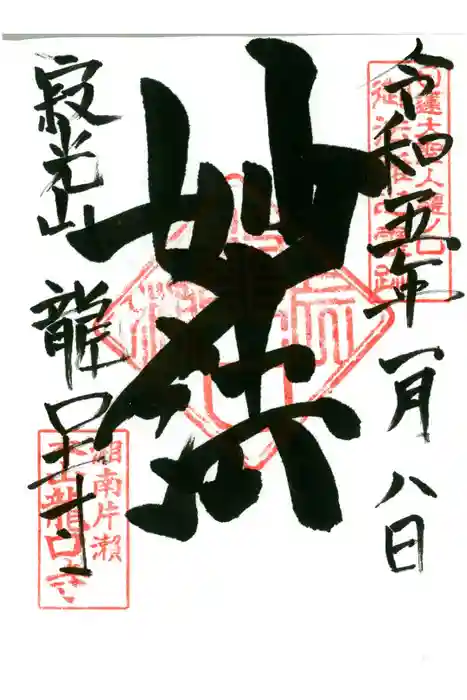 令和五年一月八日
日蓮大聖人龍ノ口
御法難霊跡
妙法
寂光山 龍口寺
湘南片瀬
本山龍口寺